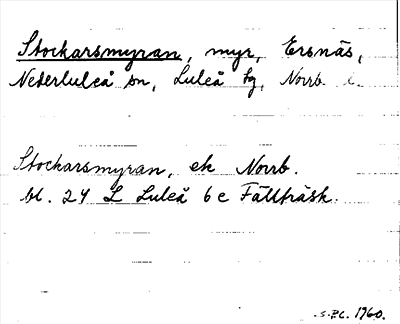 Stockarsmyran, myr, Ersnäs,
Nederluleå sn, Luleå tg, Norrb. l.
Stockarsmyran, ek Norrb.
bl. 24 L Luleå 6e Fällträsk.
1960.